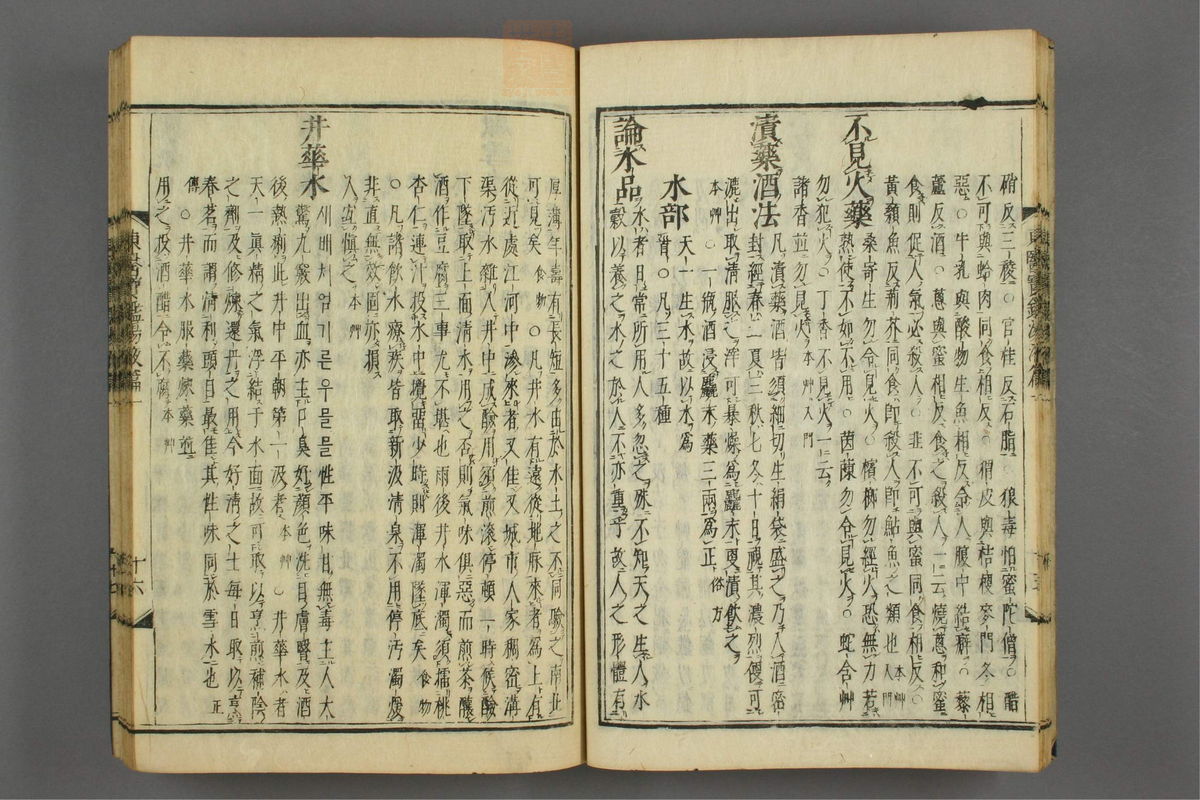 硝反三稜○官桂反石脂○狼毒怕蜜陀僧○醋
不可與蛤肉同食相反○猬皮與桔梗麥門冬相
惡○牛乳與酸物生魚相反令人腹中結癖○藜
蘆反酒○蔥與蜜相反食之殺人一云燒蔥和蜜
食則促人氣必殺人○韭不可與蜜同食相反○
黃顙魚反荊芥同食卽殺人卽鮎魚之類也本艸入門
不見火藥
桑寄生勿令見火○檳榔勿經火恐無力若
熟使不如不用○茵蔯勿令見火○蛇含艸
勿犯火○丁香不見火一云
諸香並勿見火本艸入門
漬藥酒法
凡漬藥酒皆須細切生絹袋盛之乃入酒密
封經春五夏三秋七冬十日視其濃烈便可
漉出取清服之滓可暴燥爲麤末更漬飮之
本艸○一甁酒浸麤末藥三兩爲正俗方
水部
天一生水故以水爲
首○凡三十五種
論水品
水者日常所用人多忽之殊不知天之生人水
穀以養之水之於人不亦重乎故人之形體有
厚薄年壽有長短多由於水土之不同驗之南北
可見矣食物○凡井水有遠從地脉來者爲上有
從近處江河中滲來者又佳又城市人家稠密溝
渠汚水雜入井中成鹼用須煎滾停頓一時候鹼
下墜取上面清水用之否則氣味俱惡而煎茶釀
酒作豆腐三事尤不堪也雨後井水渾濁須擂桃
杏仁連汁投水中攪留少時則渾濁墜底矣食物
○凡諸飮水療疾皆取新汲清泉不用停汚濁煖
非直無效固亦損
人宜愼之本艸
井華水
새배처엄기른우믈믈性平味甘無毒主人大
驚九竅出血亦主口臭好顔色洗目膚瞖及酒
後熱痢此井中平朝第一汲者本艸○井華水者
天一眞精之氣浮結于水面故可取以烹煎補陰
之劑及修煉還丹之用今好淸之士每日取以烹
春茗而謂淸利頭目最佳其性味同於雪水也正
傳○井華水服藥煉藥並
用之投酒醋令不腐本艸
十六